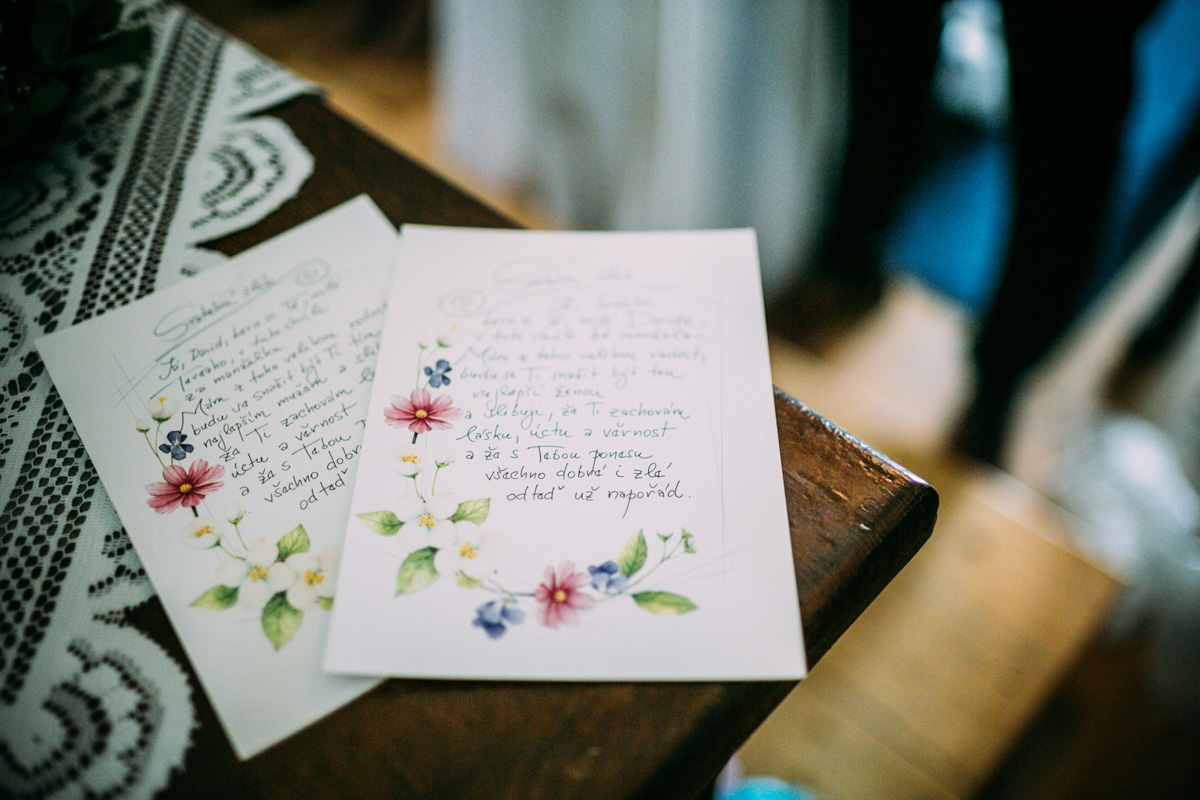 Svatební slib
Já, David, beru si Tě,
za manželku.
Mám z toho velikou radost
budu se snažit být Ti tím
nejlepším mužem a
že Ti zachovám
úctu a věrnost
a že s Tebou
všechno dobré
odteď
Svatební slib
Já
beru si Tě, můj Davide,
v tuto chvíli za manžela.
Mám z toho velikou radost,
budu se Ti snažit být tou
nejlepší ženou
a slibuji, že Ti zachovám
lásku, úctu a věrnost
a že s Tebou ponesu
všechno dobré i zlé
odteď už napořád.